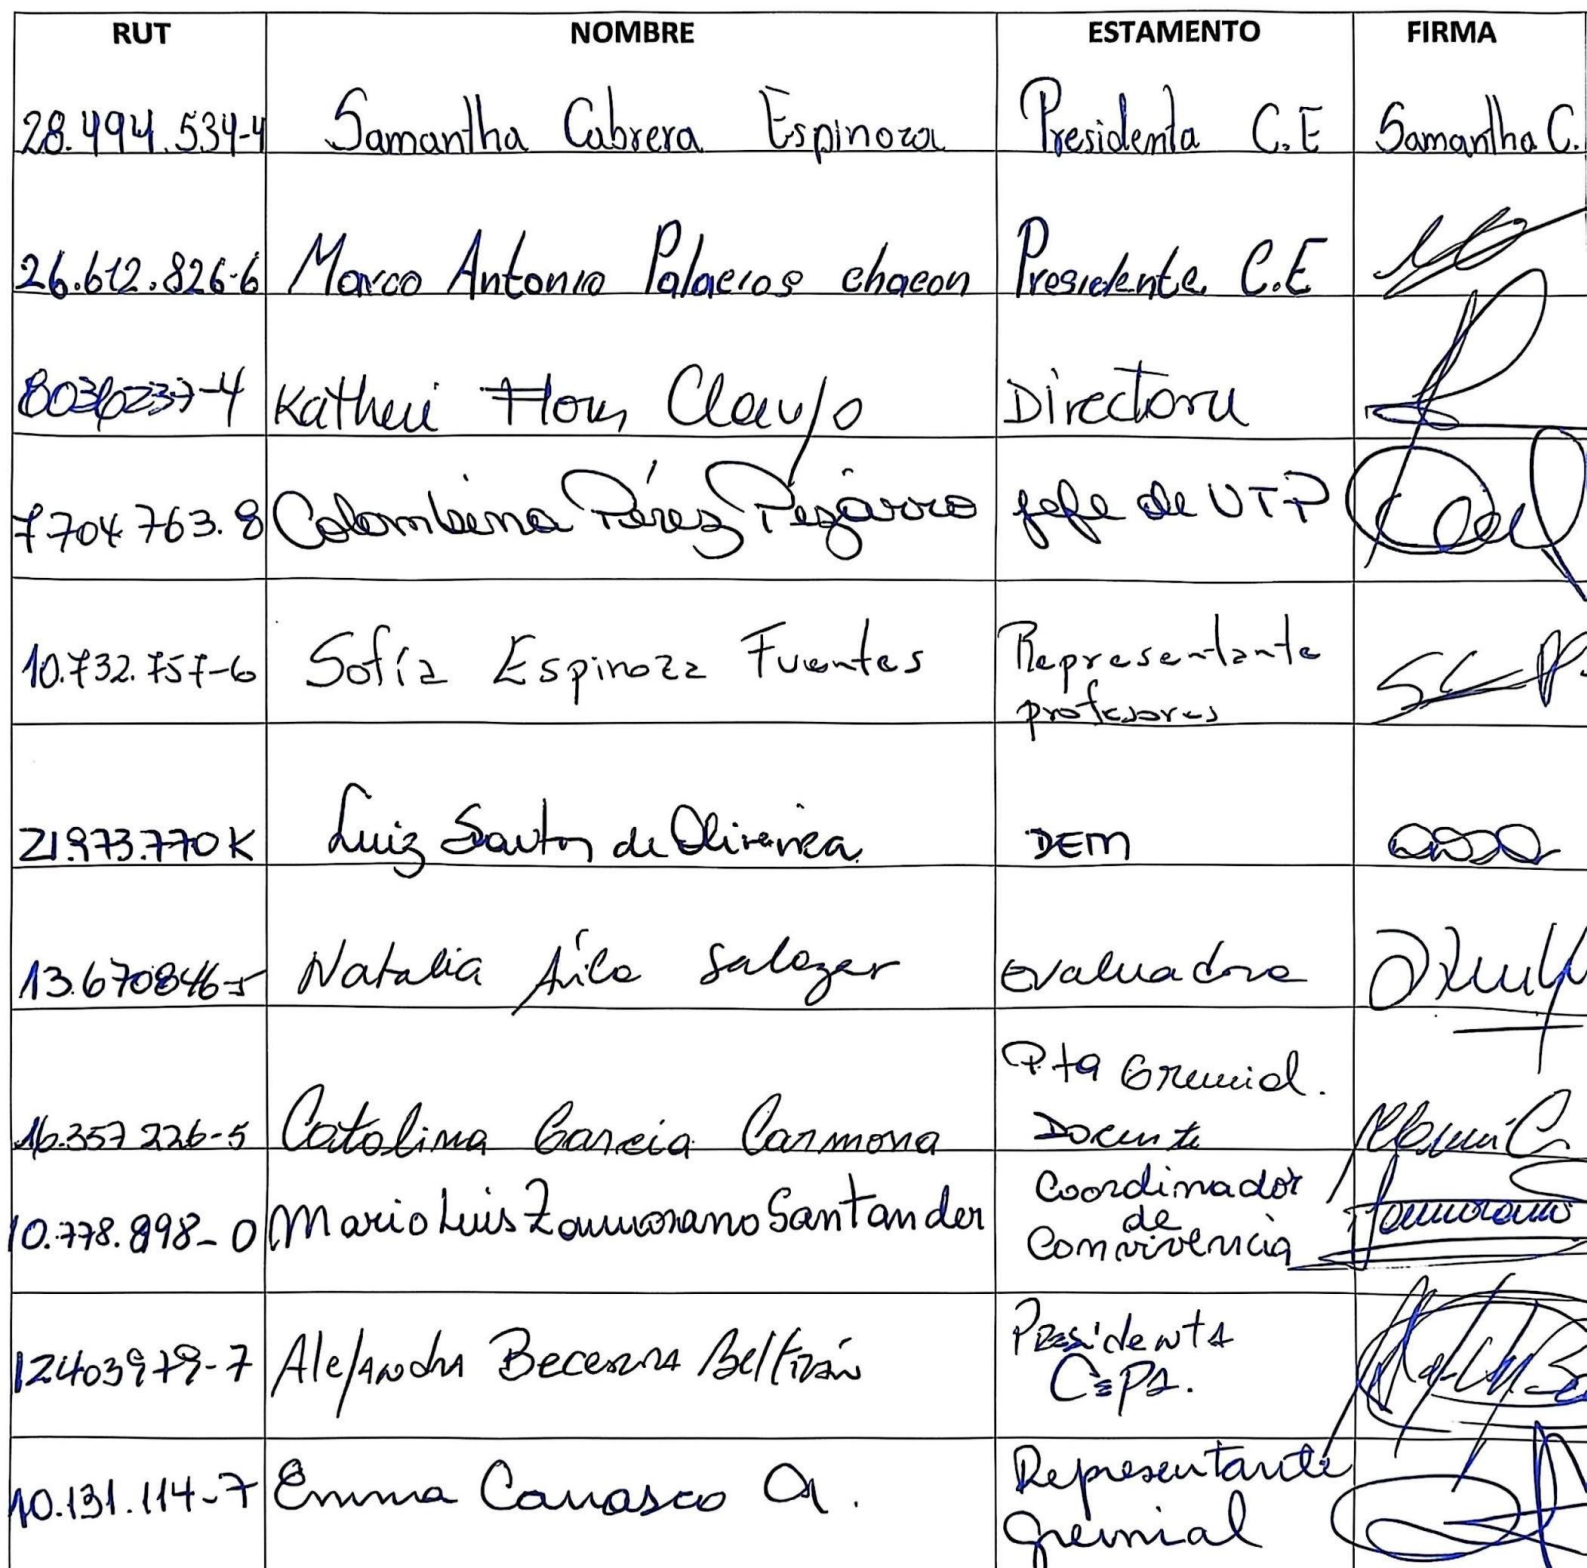 RUT NOMBRE ESTAMENTO FIRMA
28.494.534-4 Samantha Cabrera Espinoza Presidenta C.E Samantha C.
26.612.826-6 Marco Antonio Palacios chacon Presidente C.E
Directora
7704763.8 Colombina Pérez Pizarro Jefe de UTP
10.732.757-6 Sofía Espinoza Fuentes Representante
profesores
21973.770K Luiz Santos de Oliveira DEM
13.670846-5 Natalia Salazar Evaluadora
Pta Gremial.
16.357 226-5 Catalina Garcia Carmona Docente
10.778.898-0 Mario Luis Zamorano Santander Coordinador
de
Convivencia
12403979-7 Alejandra Becerra Beltrán Presidenta
CEPA.
10.131.114-7 Emma Carrasco Representante
gremial